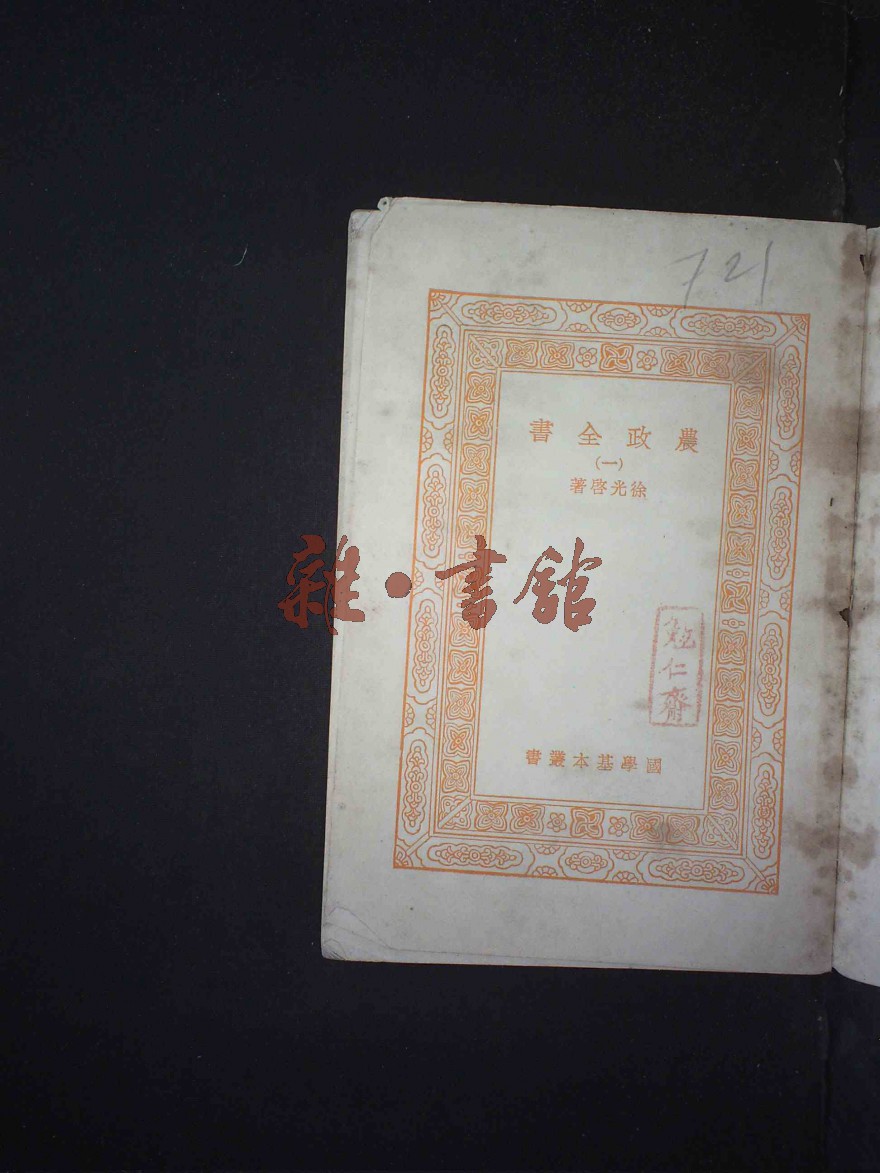 721
農政全書
(一)
徐光啓著
雜·書館
仁齋
國學基本叢書